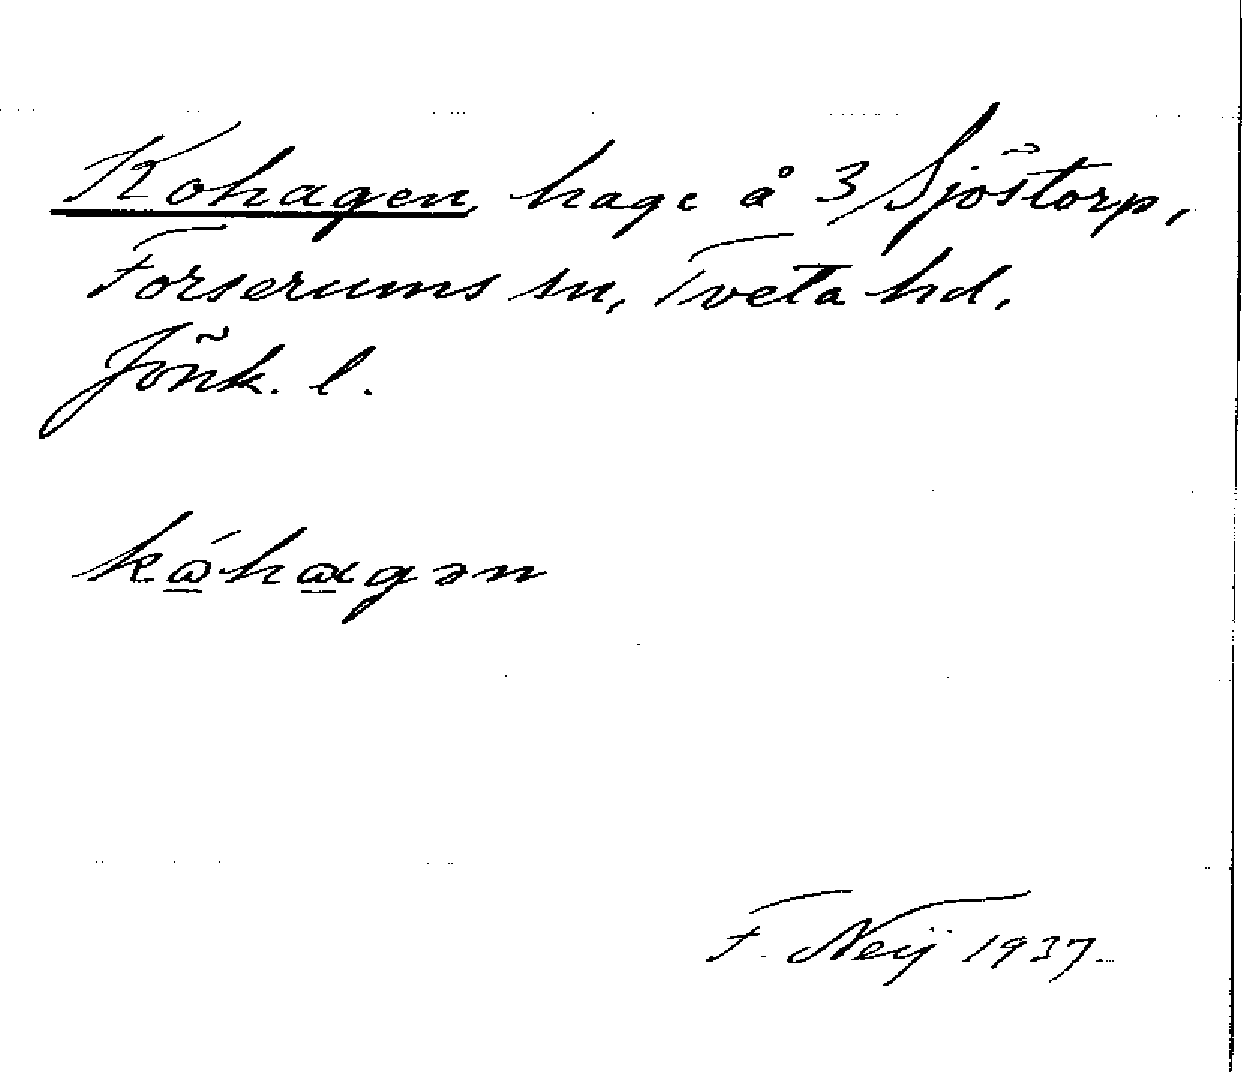 Kohagen, hage å 3/Sjöstorp,
Forserums sn, Tveta hd,
Jönk. l.
kǻhagən
F. Neij 1937.